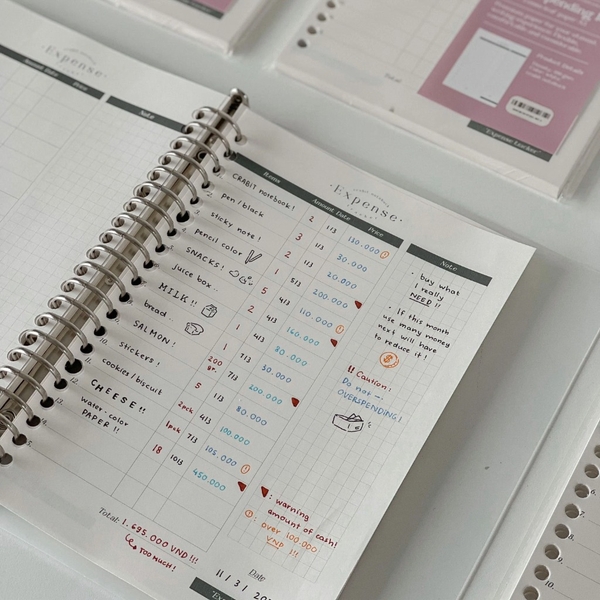 Expense
Amount Date Price
Note
Expense
Items Amount Date Price
CRABIT notebook! 2 1/3 130.000
pen/black 3 1/3 30.000
sticky note! 2 1/3 20.000
pencil color 1 5/3 200.000
SNACKS! 5 1/3 110.000
juice box.. 2 4/3 160.000
MILK!! 1 4/3 80.000
bread.. 1 7/3 50.000
SALMON! 200 gr. 7/3 200.000
10. stickers! 5 1/3 80.000
cookies/biscuit 2pck 4/3 100.000
12. CHEESE!! 1pck 7/3 105.000
13. water-color PAPER!! 18 10/3 450.000
Total: 1.695.000 VND!!!
TOO MUCH!
Note
· buy what
I really
NEED!!
· If this month
use many money
next will have
to reduce it!
!! Caution!
Do not
OVERSPENDING!
: warning
amount of cash!
: over 100.000
VND !!!
Date
11/3/
Product Details
"Expense Tracker"
9.
10.